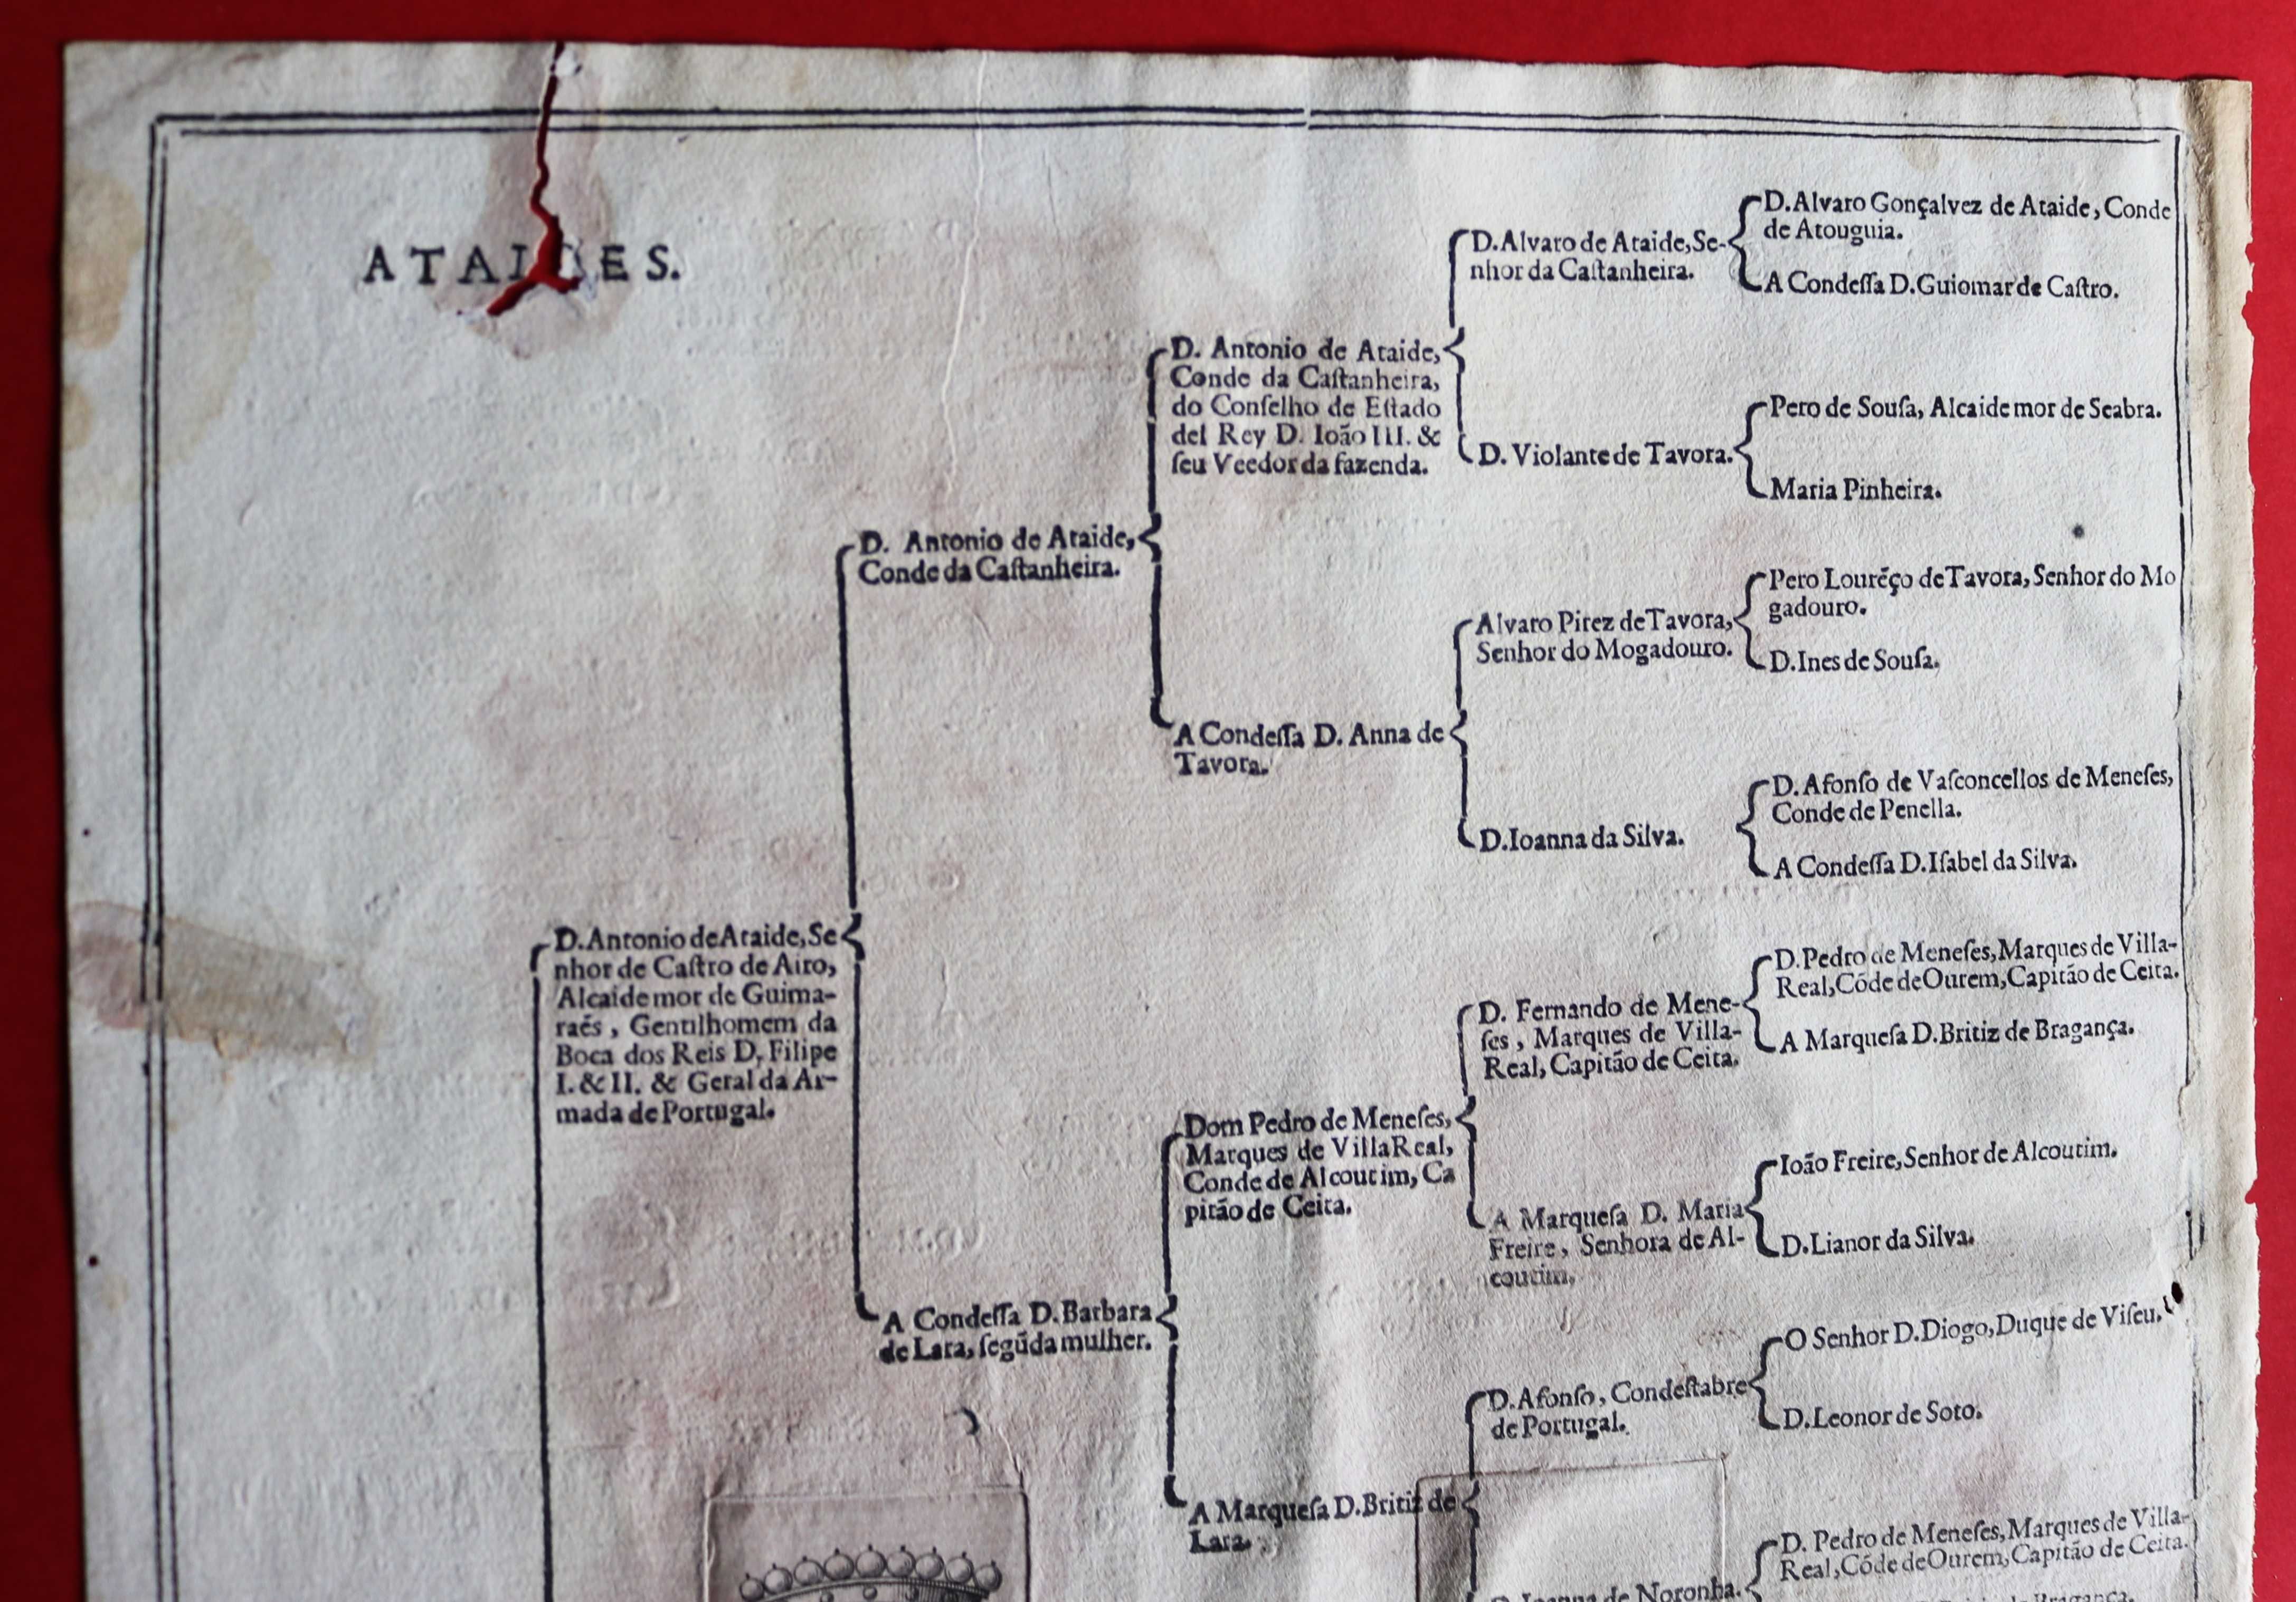 ATAIDES.
D. Alvaro Gonçalvez de Ataide, Conde
de Atouguia.
D. Alvaro de Ataide, Se-
nhor da Caſtanheira.
A Condeſſa D. Guiomar de Caſtro.
D. Antonio de Ataide,
Conde da Caſtanheira,
do Conſelho de Eſtado
del Rey D. Ioão III. &
ſeu Veedor da fazenda.
Pero de Souſa, Alcaide mor de Seabra.
D. Violante de Tavora.
Maria Pinheira.
D. Antonio de Ataide,
Conde da Caſtanheira.
Pero Lourẽço de Tavora, Senhor do Mo
gadouro.
Alvaro Pirez de Tavora,
Senhor do Mogadouro.
D. Ines de Souſa.
A Condeſſa D. Anna de
Tavora.
D. Afonſo de Vaſconcellos de Meneſes,
Conde de Penella.
D. Ioanna da Silva.
A Condeſſa D. Iſabel da Silva.
D. Antonio de Ataide, Se
nhor de Caſtro de Airo,
Alcaide mor de Guima-
raẽs, Gentilhomem da
Boca dos Reis D. Filipe
I. & II. & Geral da Ar-
mada de Portugal.
D. Pedro de Meneſes, Marques de Villa-
Real, Cõde de Ourem, Capitão de Ceita.
D. Fernando de Mene-
ſes, Marques de Villa-
Real, Capitão de Ceita.
A Marqueſa D. Britiz de Bragança.
Dom Pedro de Meneſes,
Marques de Villa Real,
Conde de Alcoutim, Ca
pitão de Ceita.
Ioão Freire, Senhor de Alcoutim.
A Marqueſa D. Maria
Freire, Senhora de Al-
coutim.
D. Lianor da Silva.
A Condeſſa D. Barbara
de Lara, ſegũda mulher.
O Senhor D. Diogo, Duque de Viſeu.
D. Afonſo, Condeſtabre
de Portugal.
D. Leonor de Soto.
A Marqueſa D. Britiz de
Lara.
D. Pedro de Meneſes, Marques de Villa-
Real, Cõde de Ourem, Capitão de Ceita.
D. Ioanna de Noronha.
Bragança.